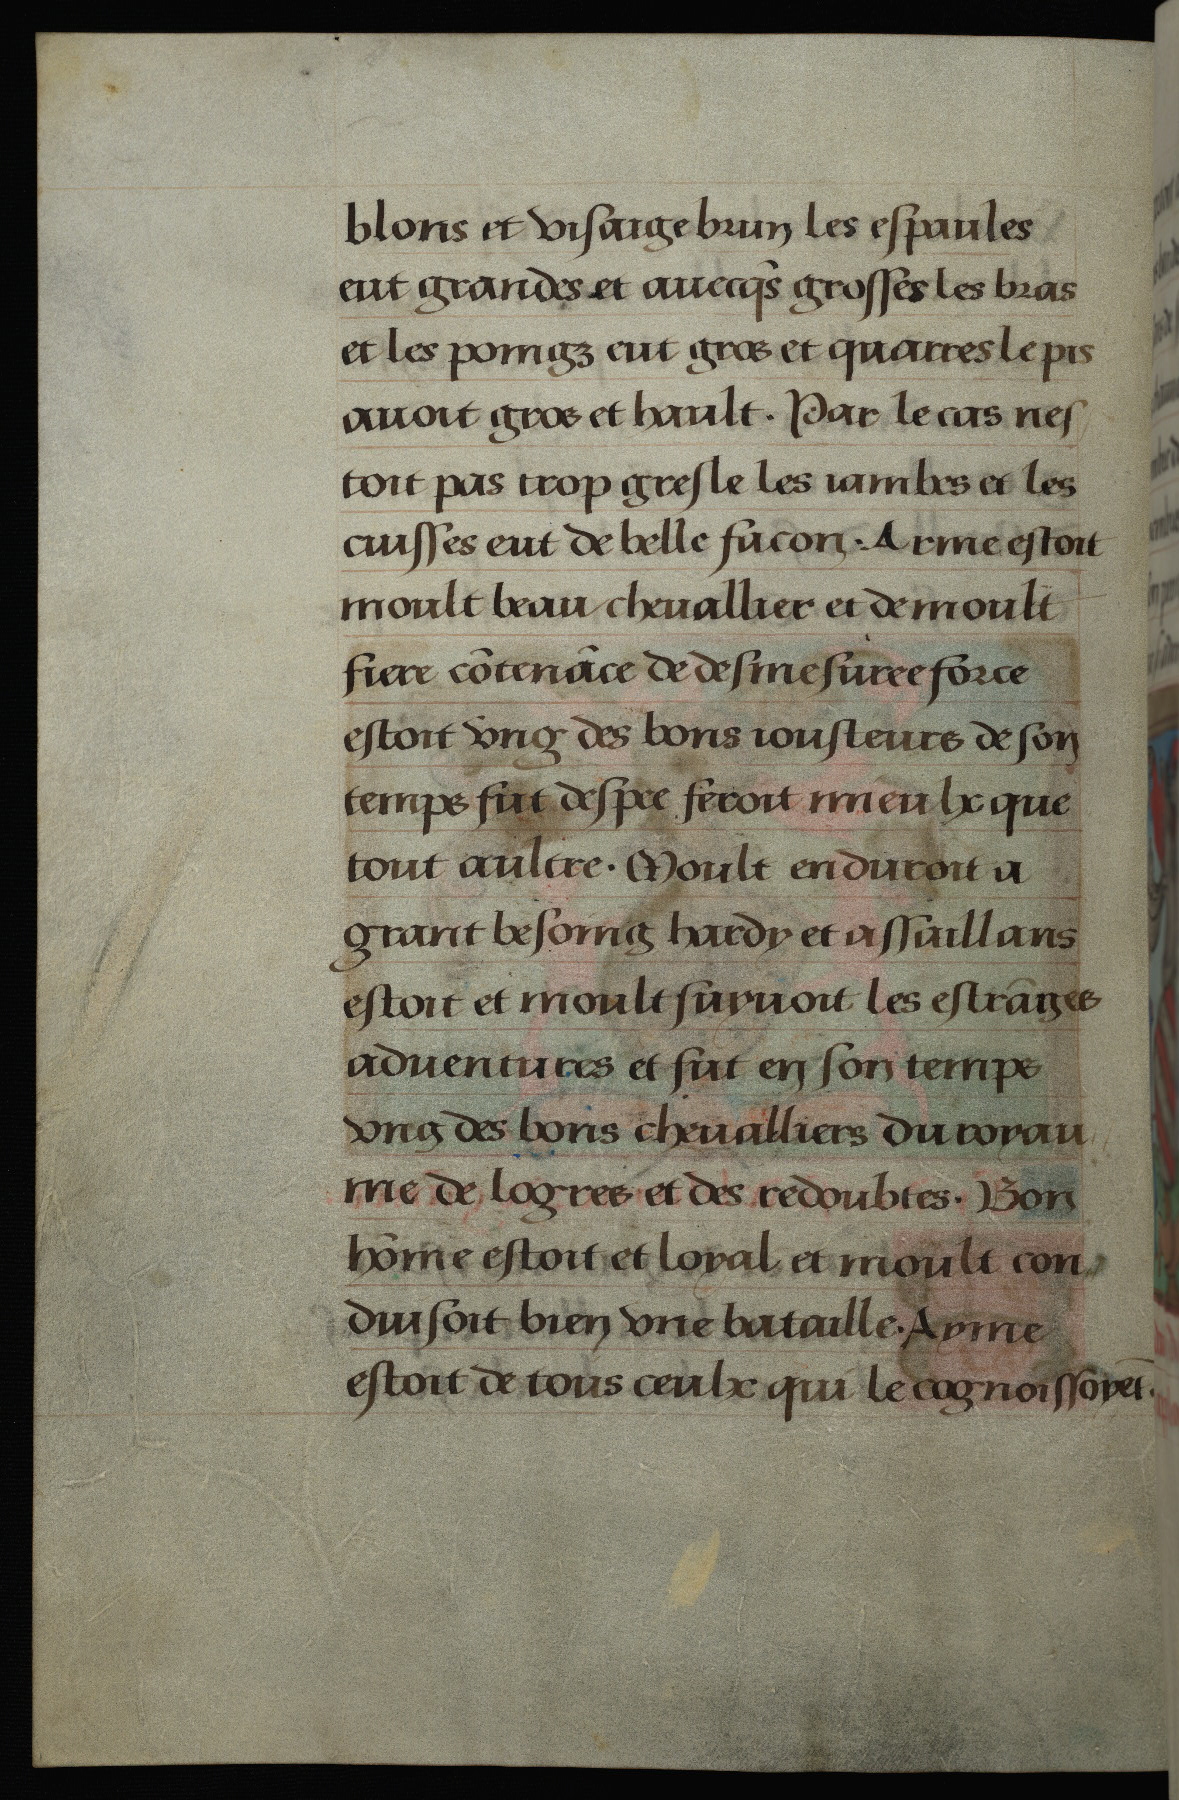 blons et visaige brun les espaules
eut grandes et avecq̃s grosses les bras
et les poingz eut gros et quarres le pis
avoit gros et hault. Par le cas nes
toit pas trop gresle les iambes et les
cuisses eut de belle facon. Arme estoit
moult beau chevallier et de moult
fiere cõtenãce de desmesuree force
estoit vng des bons iousteurs de son
temps fut despee feroit mieulx que
tout aultre. Moult enduroit a
grant besoing hardy et assaillans
estoit et moult suyvoit les estrãges
adventures et fut en son temps
vng des bons chevalliers du royau
me de logres et des redoubtes. Bon
hõme estoit et loyal et moult con
duisoit bien vne bataille. Ayme
estoit de tous ceulx qui le cognoissoyẽt.